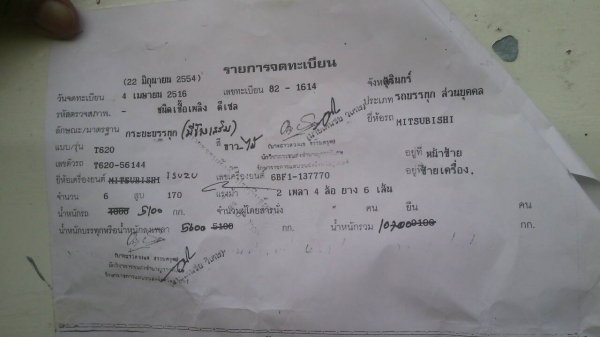 รายการจดทะเบียน
(22 มิถุนายน 2554)
วันจดทะเบียน 4 เมษายน 2516 เลขทะเบียน 82 - 1614 จังหวัดสุรินทร์
รหัสตรวจสภาพ. - ชนิดเชื้อเพลิง ดีเซล ประเภท รถบรรทุก ส่วนบุคคล
ลักษณะ/มาตรฐาน กระบะบรรทุก สี ขาว ยี่ห้อรถ MITSUBISHI
แบบ/รุ่น T620
เลขตัวรถ T620-56144 อยู่ที่ หน้าซ้าย
ยี่ห้อเครื่องยนต์ MITSUBISHI ISUZU เลขเครื่องยนต์ 6BF1-137770 อยู่ที่ซ้ายเครื่อง.
จำนวน 6 สูบ 170 แรงม้า 2 เพลา 4 ล้อ ยาง 6 เส้น
น้ำหนักรถ 5100 กก. จำนวนผู้โดยสารนั่ง - คน ยืน คน
น้ำหนักบรรทุกหรือน้ำหนักลงเพลา 5600 5100 กก. น้ำหนักรวม 10700 9100 กก.